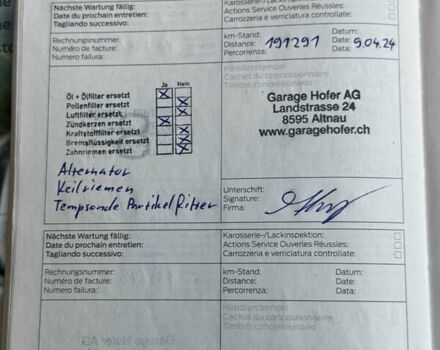 Nächste Wartung fällig:
Date du prochain entretien:
Tagliando successivo:
Karosserie-/Lackinspektion:
Actions Service Ouveries Réussles:
Carrozzeria e verniciatura controllate:
Rechnungsnummer:
Numéro de facture:
Numero failura:
km-Stand:
Distance:
Percorrenza:
191291
Datum:
Date:
Data:
9.04.24
Händlerstempel
Cachet du concessionnaire
Timbro concessionario
Ja
Nein
Öl + Ölfilter ersetzt
Pollenfilter ersetzt
Luftfilter ersetzt
Zündkerzen ersetzt
Kraftstoffilter ersetzt
Bremsflüssigkeit ersetzt
Zahnriemen ersetzt
Garage Hofer AG
Landstrasse 24
8595 Altnau
www.garagehofer.ch
Alternator
Keilriemen
Tempsonde Partikelfilter
Unterschift:
Signature:
Firma:
Nächste Wartung fällig:
Date du prochain entretien:
Tagliando successivo:
Karosserie-/Lackinspektion:
Actions Service Ouveries Réussles:
Carrozzeria e verniciatura controllate:
Rechnungsnummer:
Numéro de facture:
Numero failura:
km-Stand:
Distance:
Percorrenza:
Datum:
Date:
Data:
Händlerstempel
Cachet du concessionnaire
Timbro concessionario